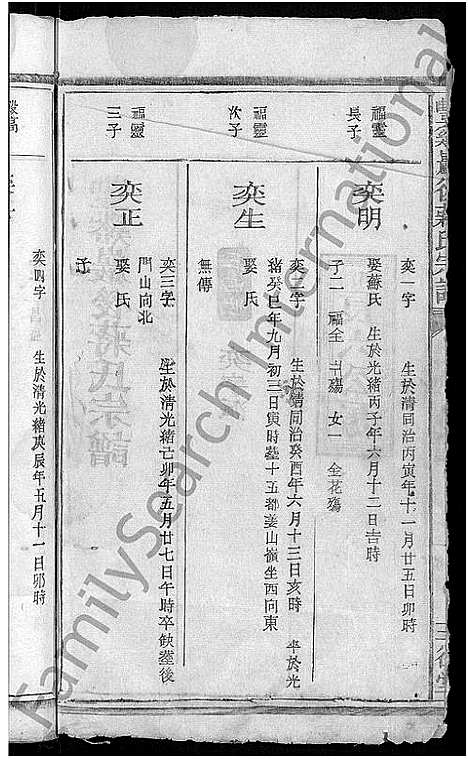 福靈
長子
奕明
奕一字 生於清同治丙寅年十一月廿五日卯時
娶蘇氏 生於光緒丙子年六月十三日吉時
子二 福全 殤 女一 金花殤
福靈
次子
奕生
奕二字 生於清同治癸酉年六月十三日亥時 卒於光
緒癸巳年九月初三日寅時塟十五都姜山嶺坐西向東
娶氏
無傳
福靈
三子
奕正
奕三字 生於清光緒己卯年五月廿七日午時卒缺塟後
門山向北
娶氏
子
奕 字 生於清光緒庚辰年五月十一日卯時
FamilySearch International